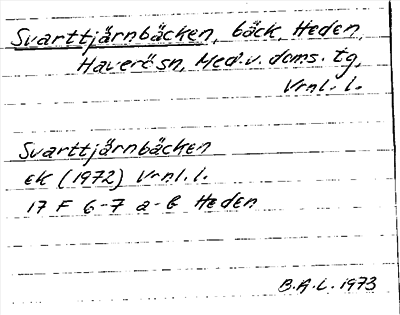 Svarttjärnbäcken, bäck, Heden,
Haverösn, Med.v. doms. tg,
Vrnl. l.
Svarttjärnbäcken
EK (1972) Vrnl. l.
17 F 6-7 a-b Heden
B.A.L. 1973